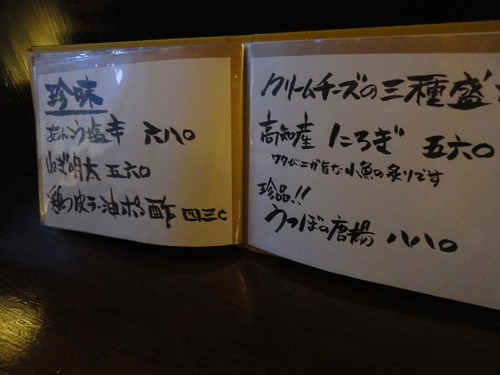 珍味
あんこう塩辛 六八〇
ねぎ明太 五六〇
鶏つ皮ラー油ポン酢 四三〇
クリームチーズの三種盛
高知産 にろぎ 五六〇
ワタがニガ旨な小魚の炙りです
珍品!!
うつぼの唐揚 八八〇